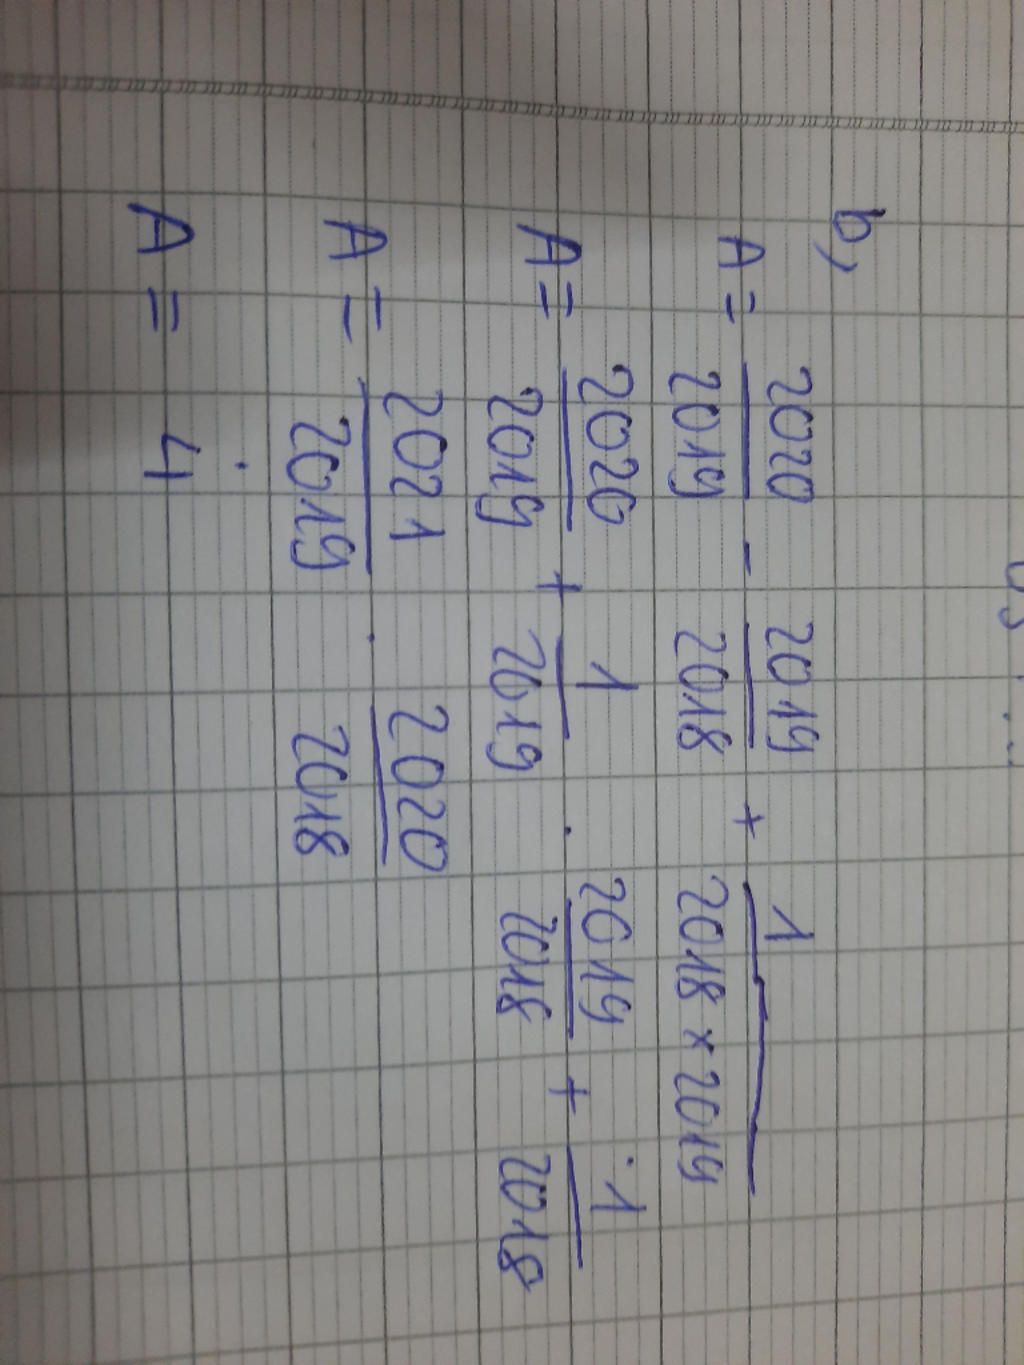 b,
A = 2020/2019 - 2019/2018 + 1/2018 × 2019
A = 2020/2019 + 1/2019 . 2019/2018 + 1/2018
A = 2021/2019 . 2020/2018
A = 4